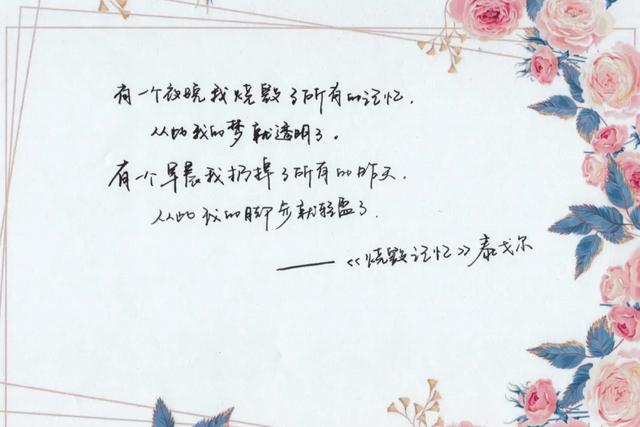 有一个夜晚我烧毁了所有的记忆,
从此我的梦就透明了。
有一个早晨我扔掉了所有的昨天,
从此我的脚步就轻盈了.
——《烧毁记忆》泰戈尔